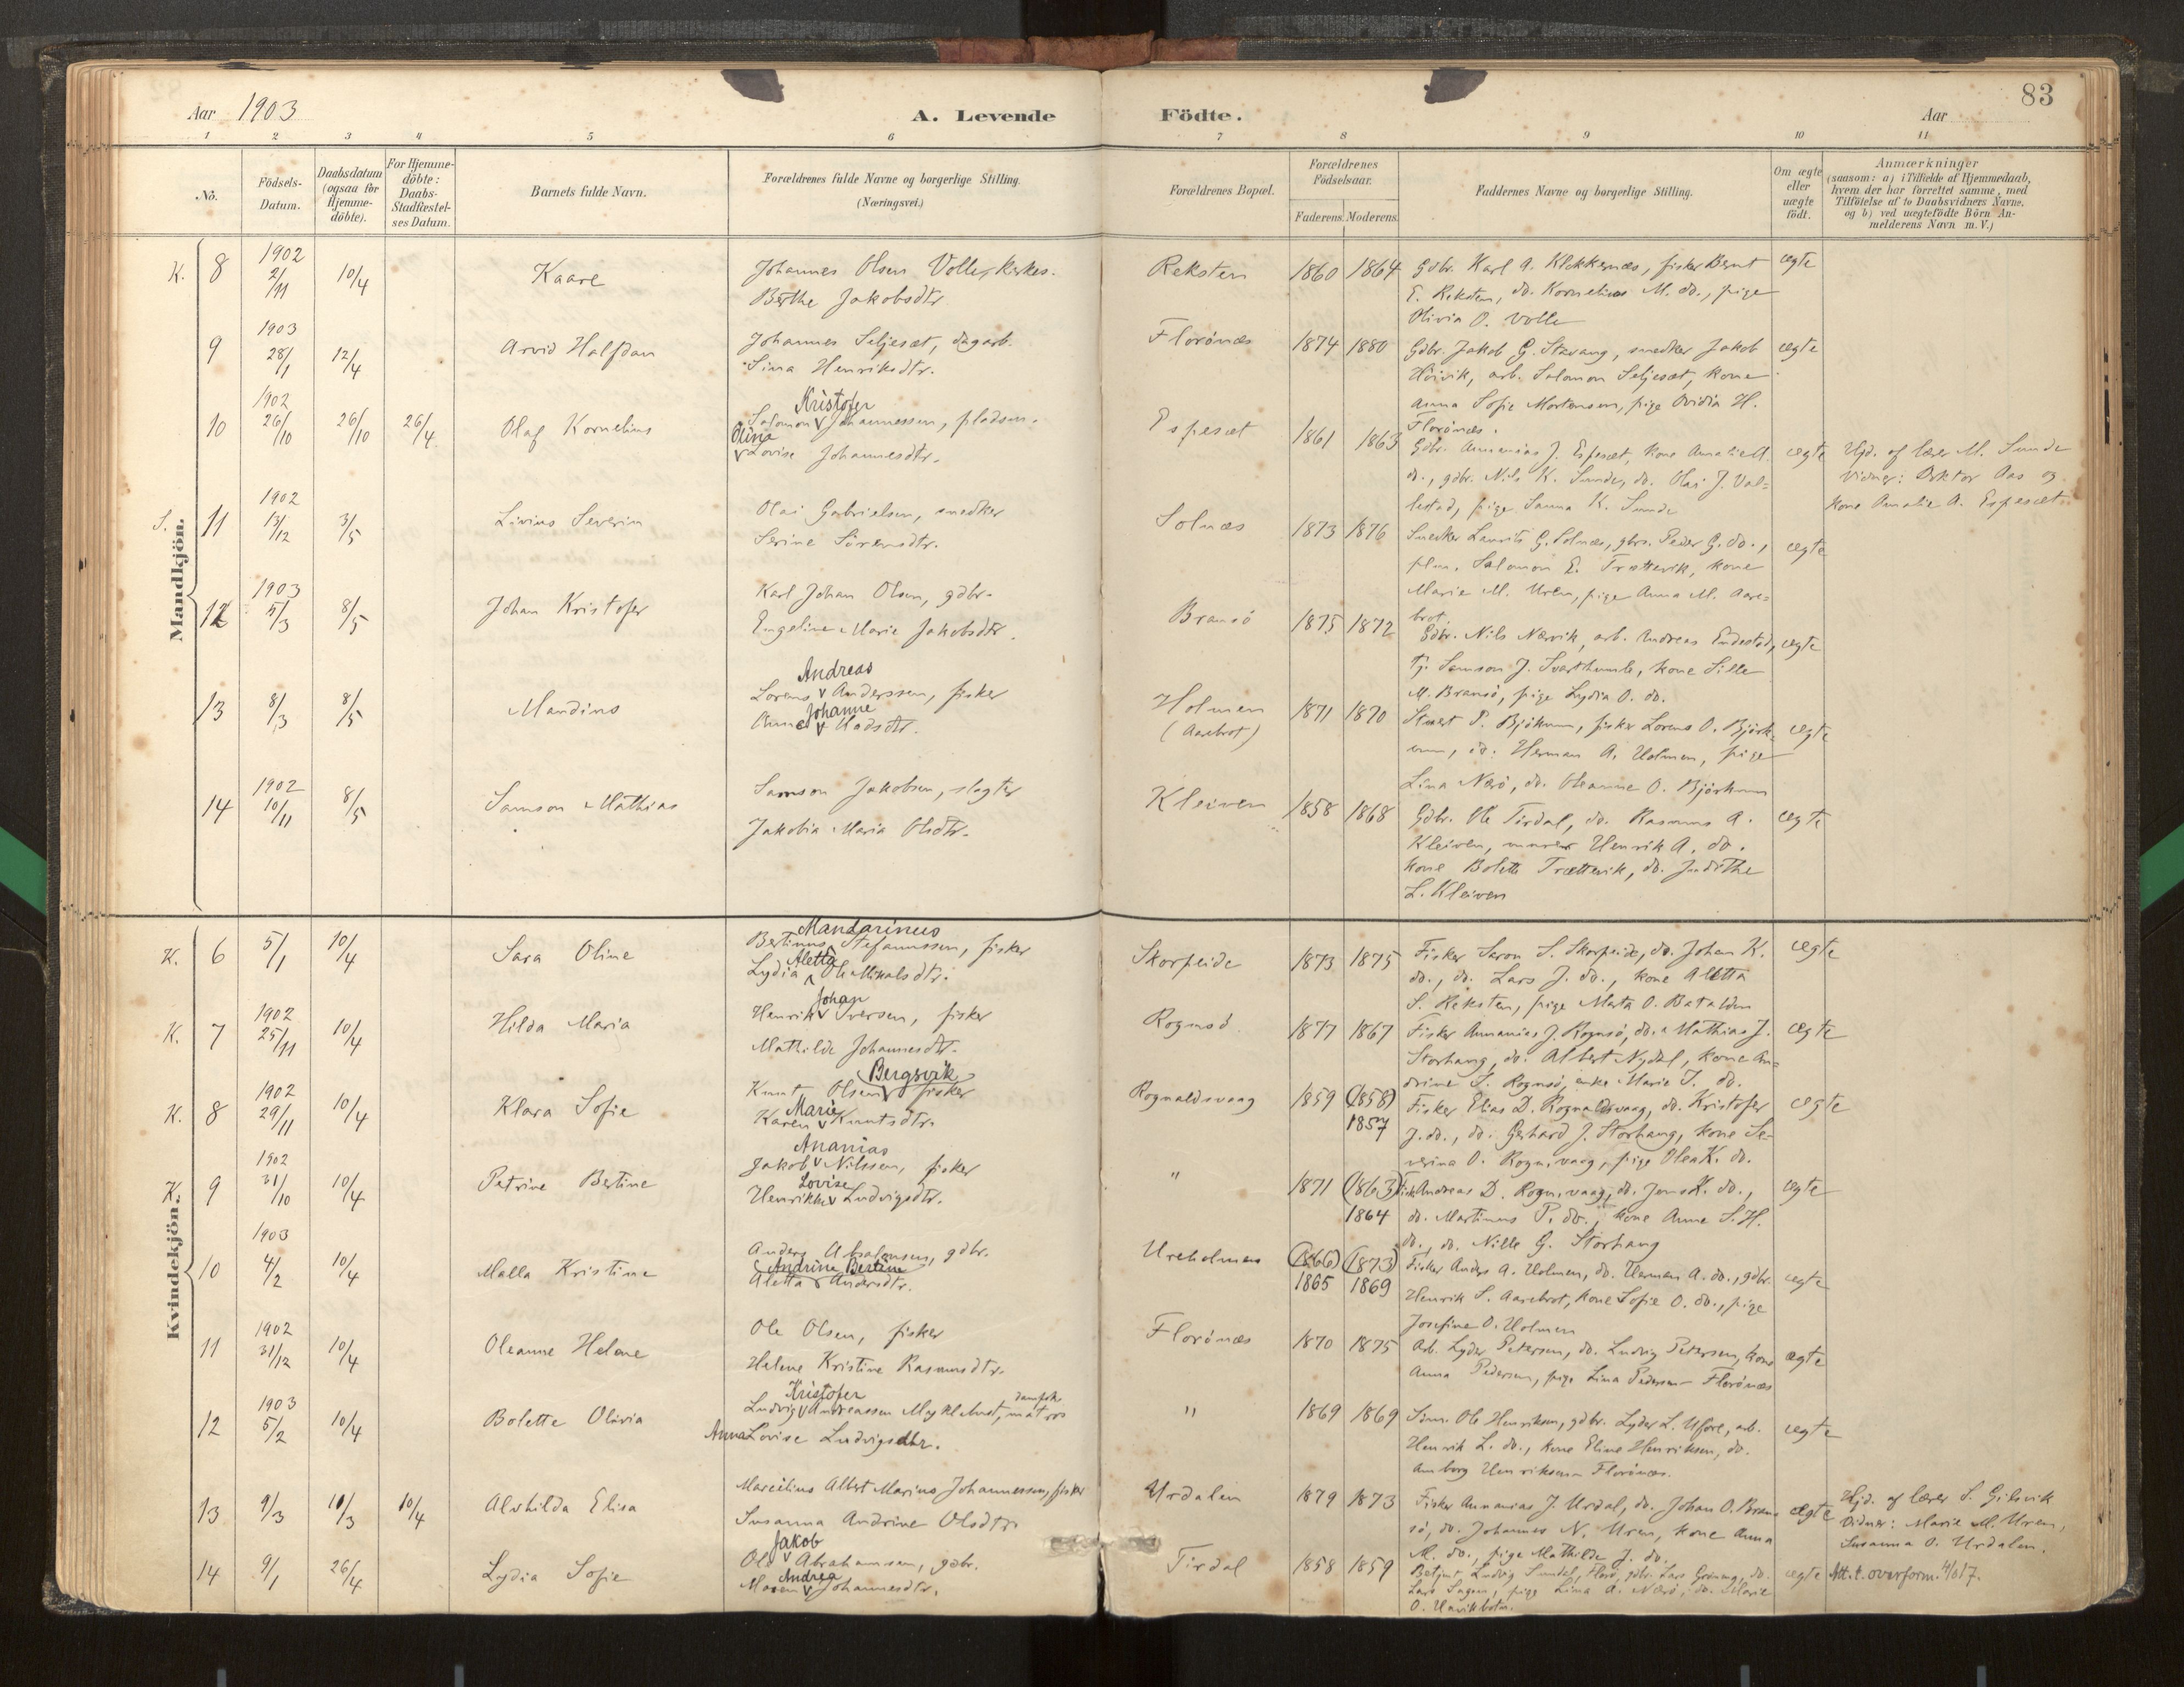 83
Aar 1903
A. Levende Födte.
Aar
1 2 3 4 5 6 7 8 9 10 11
No.
Födsels-Datum.
Daabsdatum (ogsaa for Hjemme-döbte).
For Hjemme-döbte: Daabs-Stadfæstel-ses Datum.
Barnets fulde Navn.
Forældrenes fulde Navne og borgerlige Stilling.
(Næringsvei.)
Forældrenes Bopæl.
Forældrenes Födselsaar.
Faderens. Moderens.
Faddernes Navne og borgerlige Stilling.
Om ægte eller uægte födt.
Anmærkninger
(saasom: a) i Tilfælde af Hjemmedaab,
hvem der har forrettet samme, med
Tilföielse af to Daabsvidners Navne,
og b) ved uægtefödte Börn An-
melderens Navn m. V.)
Mandkjön.
K. 8 1902 2/11 10/4 Kaare
Johannes Olsen Volle, kirkes.
Berthe Jakobsdtr
Reksten 1860 1864
Gdbr. Karl A. Klokkernæs, fisker Bernt
E. Reksten, do. Kornelius M. do., pige
Olivia O. Volle
ægte
9 1903 28/1 12/4 Arvid Halfdan
Johannes Seljesæt, dagarb.
Sina Henriksdtr.
Florønæs 1874 1880
Gdbr. Jakob G. Stavang, snedker Jakob
Höivik, arb. Salomon Seljesæt, kone
Anna Sofie Mortensen, pige Ovidia H.
Florönæs.
ægte
10 1902 26/10 26/10 26/4 Olaf Kornelius
Kristofer
Salomon v Johannessen, pladsm.
Olina
v Lovise Johannesdtr.
Espesæt 1861 1863
Gdbr. Annanias J. Espesæt, kone Amalie A.
do., gdbr. Nils K. Sunde, do. Olai J. Val=
lestad, pige Sanna K. Sunde
ægte
Hjd. af lærer M. Sunde
Vidner: Doktor Aas og
kone Amalie A. Espesæt.
S. 11 1902 13/12 3/5 Livius Severin
Olai Gabrielsen, snedker
Serine Sörensdtr.
Solnæs 1873 1876
Snedker Laurits G. Solnæs, gbrs. Peder G. do.,
plm. Salomon E. Trættevik, kone
Marie M. Uren, pige Anna M. Aare=
brot.
ægte
12 1903 5/3 8/5 Johan Kristofer
Karl Johan Olsen, gdbr.
Engeline Marie Jakobsdtr.
Bransö 1875 1872
Gdbr. Nils Nærvik, arb. Andreas Endestad,
tj. Samson J. Svarthumle, kone Sille
M. Bransö, pige Lydia O. do.
ægte
13 8/3 8/5 Mandius
Andreas
Lorens v Anderssen, fisker
Johanne
Anne v Madsdtr.
Holmen
(Aarebrot)
1871 1870
P. Björkum, fisker Lorens O. Björk=
um, do. Herman A. Holmen, pige
Lina Nærö, do. Oleanne O. Björkum
ægte
14 1902 10/11 8/5 Samson Mathias
Samson Jakobsen, slagter
Jakobia Maria Olsdtr.
Kleiven 1858 1868
Gdbr. Ole Tirdal, do. Rasmus A.
Kleiven, murer Henrik A. do.
kone Bolette Trættevik, do. Judithe
L. Kleiven
ægte
Kvindekjön.
K. 6 5/1 10/4 Sara Oline
Mandarinus
Bertinus Stefanussen, fisker
Aletta
Lydia Ole Mikalsdtr.
Skorpeide 1873 1875
Fisker Saron S. Skorpeide, do. Johan K.
do., do. Lars J. do., kone Aletta
S. Reksten, pige Marta O. Batalden
ægte
K. 7 1902 25/11 10/4 Hilda Maria
Johan
Henrik v Iversen, fisker
Mathilde Johannesdtr.
Rognsö 1877 1867
Fisker Annanias J. Rognsö, do. Mathias J.
Storhaug, do. Albert Nydal, kone An=
drine S. Rognsö, enke Marie I. do.
ægte
K. 8 1902 29/11 10/4 Klara Sofie
Bergsvik
Knut Olsen v fisker
Marie
Karen v Knutsdtr.
Rognaldsvaag 1859 (1858)
1857
Fisker Elias D. Rognaldsvaag, do. Kristofer
J. do., do. Gerhard J. Storhaug, kone Se=
verina O. Rogn.vaag, pige Olea K. do.
ægte
K. 9 1902 31/10 10/4 Petrine Bertine
Ananias
Jakob v Nilssen, fisker
Lovise
Henrikke v Ludvigsdtr.
" 1871 (1863)
1864
Fisk. Andreas D. Rogn.vaag, do. Jens K. do.,
do. Martinus P. do., kone Anne S. H.
do., do. Nille G. Storhaug
ægte
10 1903 4/2 10/4 Malla Kristine
Anders Absalonsen, gdbr.
Andrine Bertine
Aletta v Andersdtr.
Ureholmen (1866) (1873)
1865 1869
Fisker Anders A. Holmen, do. Herman A. do., gdbr.
Henrik S. Aarebrot, kone Sofie O. do., pige
Josefine O. Holmen
ægte
11 1902 31/12 10/4 Oleanne Helene
Ole Olsen, fisker
Helene Kristine Rasmusdtr.
Florönæs 1870 1875
Arb. Lyder Petersen, do. Ludvig Petersen, kone
Anna Pedersen, pige Lina Pedersen Florönæs
ægte
12 1903 5/2 10/4 Bolette Olivia
Kristofer
Ludvig v Andreassen Myklebust, dampsk. matros
Anna Lovise Ludvigsdtr.
" 1869 1869
Søm. Ole Henriksen, gdbr. Lyder L. Uføre, arb.
Henrik L. do., kone Eline Henriksen, do.
Amborg Henriksen Florönæs.
ægte
13 9/3 11/3 10/4 Alvhilda Elisa
Marcelius Albert Marius Johannessen, fisker
Susanna Andrine Olsdtr.
Urdalen 1879 1873
Fisker Annanias J. Urdal, do. Johan O. Bran=
sö, do. Johannes N. Uren, kone Anna
M. do., pige Mathilde J. do.
ægte
Hjd. af lærer S. Gilsvik
Vidner: Marie M. Uren,
Susanna O. Urdalen.
14 9/1 26/4 Lydia Sofie
Jakob
Ole v Abrahamsen, gdbr.
Andrea
Maren v Johannesdtr.
Tirdal 1858 1859
Ludvig Sundal, Florö, gdbr. Lars Grönning, do.
Lars Sagen, pige Lina A. Nærö, do. Marie
O.
ægte
Att. t. overform. 4/6 17.